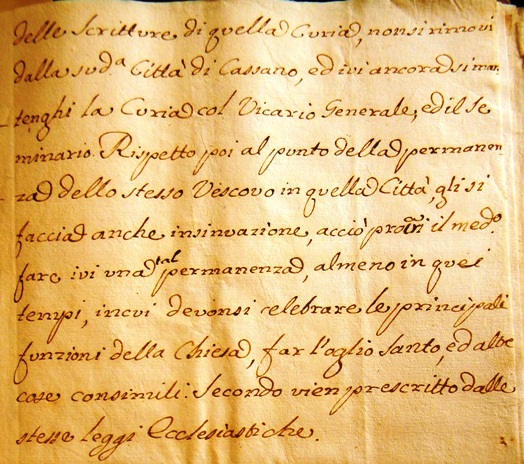 delle Scritture di quella Curia, non si rimovi
dalla sud.ª Città di Cassano, ed ivi ancora si man
tenghi la Curia col Vicario Generale, ed il Se
minario. Rispetto poi al punto della permanen
za dello stesso Vescovo in quella Città, gli si
faccia anche insinuazione, acciò il med.º
fare ivi una tal permanenza, almeno in quei
tempi, in cui devonsi celebrare le principali
funzioni della Chiesa, far l'oglio Santo, ed altre
cose consimili: Secondo vien prescritto dalle
stesse leggi Ecclesiastiche.